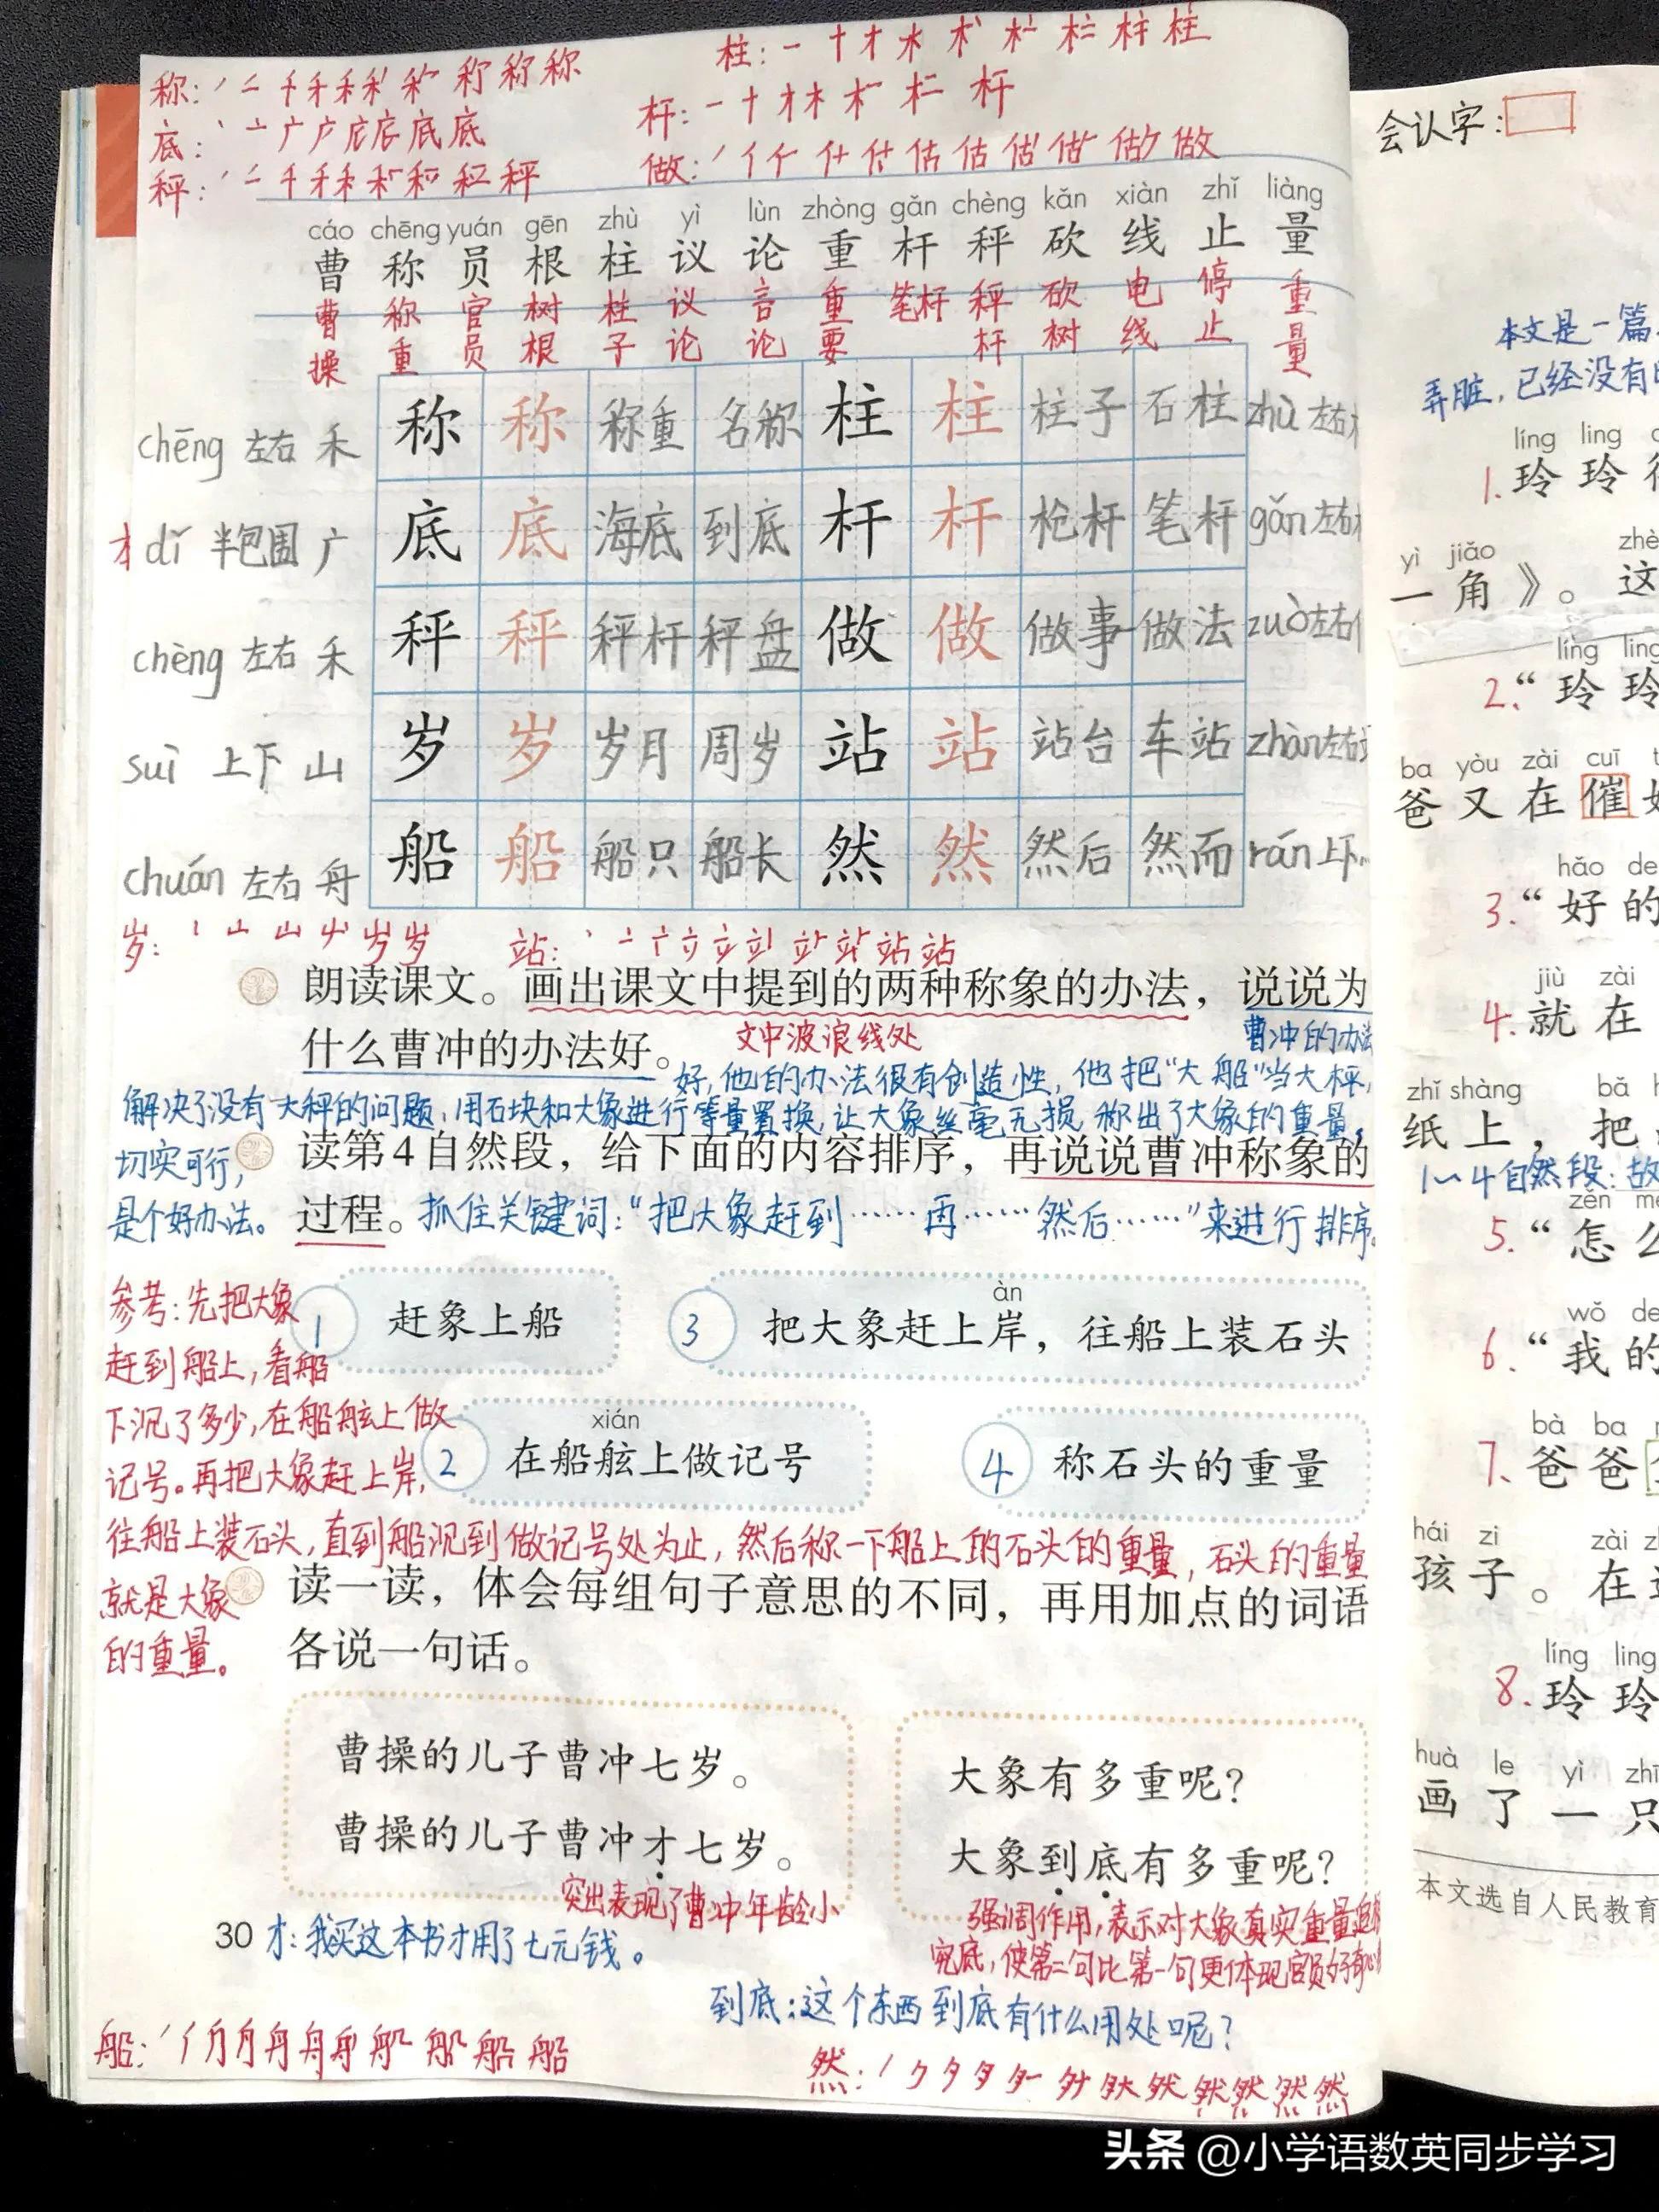 称:
柱:
底:
杆:
秤:
做:
cáo chēng yuán gēn zhù yì lùn zhòng gǎn chèng kǎn xiàn zhǐ liàng
曹 称 员 根 柱 议 论 重 杆 秤 砍 线 止 量
曹操 称重 官员 树根 柱子 议论 言论 重要 笔杆 秤杆 砍树 电线 停止 重量
chēng 左右 禾 称 称 称重 名称 柱 柱 柱子 石柱 zhù 左右
dǐ 半包围 广 底 底 海底 到底 杆 杆 枪杆 笔杆 gǎn 左右
chèng 左右 禾 秤 秤 秤杆 秤盘 做 做 做事 做法 zuò 左右
suì 上下 山 岁 岁 岁月 周岁 站 站 站台 车站 zhàn 左右
chuán 左右 舟 船 船 船只 船长 然 然 然后 然而 rán 上下
岁:
站:
朗读课文。画出课文中提到的两种称象的办法，说说为
什么曹冲的办法好。
文中波浪线处
曹冲的办法
好，他的办法很有创造性，他把“大船”当大秤，
解决了没有大秤的问题，用石块和大象进行等量置换，让大象丝毫无损，称出了大象的重量，
切实可行，
是个好办法。
读第4自然段，给下面的内容排序，再说说曹冲称象的
过程。
抓住关键词：“把大象赶到……再……然后……”来进行排序。
1 赶象上船
àn
3 把大象赶上岸，往船上装石头
xián
2 在船舷上做记号
4 称石头的重量
参考：先把大象
赶到船上，看船
下沉了多少，在船舷上做
记号。再把大象赶上岸，
往船上装石头，直到船沉到做记号处为止，然后称一下船上的石头的重量，石头的重量
就是大象
的重量。
读一读，体会每组句子意思的不同，再用加点的词语
各说一句话。
曹操的儿子曹冲七岁。
曹操的儿子曹冲才七岁。
突出表现了曹冲年龄小
大象有多重呢？
大象到底有多重呢？
强调作用，表示对大象真实重量追根
究底，使第二句比第一句更体现官员好奇心
30
才：我买这本书才用了七元钱。
到底：这个东西到底有什么用处呢？
船:
然:
会认字：
本文是一篇
弄脏，已经没有
líng ling
1. 玲玲
yì jiǎo
一角》。这
líng ling
2. “玲玲
ba yòu zài cuī
爸又在催
hǎo de
3. “好的
jiù zài
4. 就在
zhǐ shàng bǎ
纸上，把
1～4自然段：故
zěn me
5. “怎么
wǒ de
6. “我的
bà ba
7. 爸爸
hái zi zài
孩子。在
líng ling
8. 玲玲
huà le yì zhī
画了一只
本文选自人民教育
头条 @小学语数英同步学习